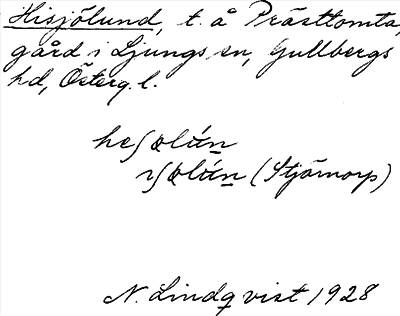 Hisjölund, t. å Prästtomta,
gård i Ljungs sn, Gullbergs
hd, Österg. l.
heʃɷlún
ɿʃɷlún (Stjärnorp)
N. Lindqvist 1928